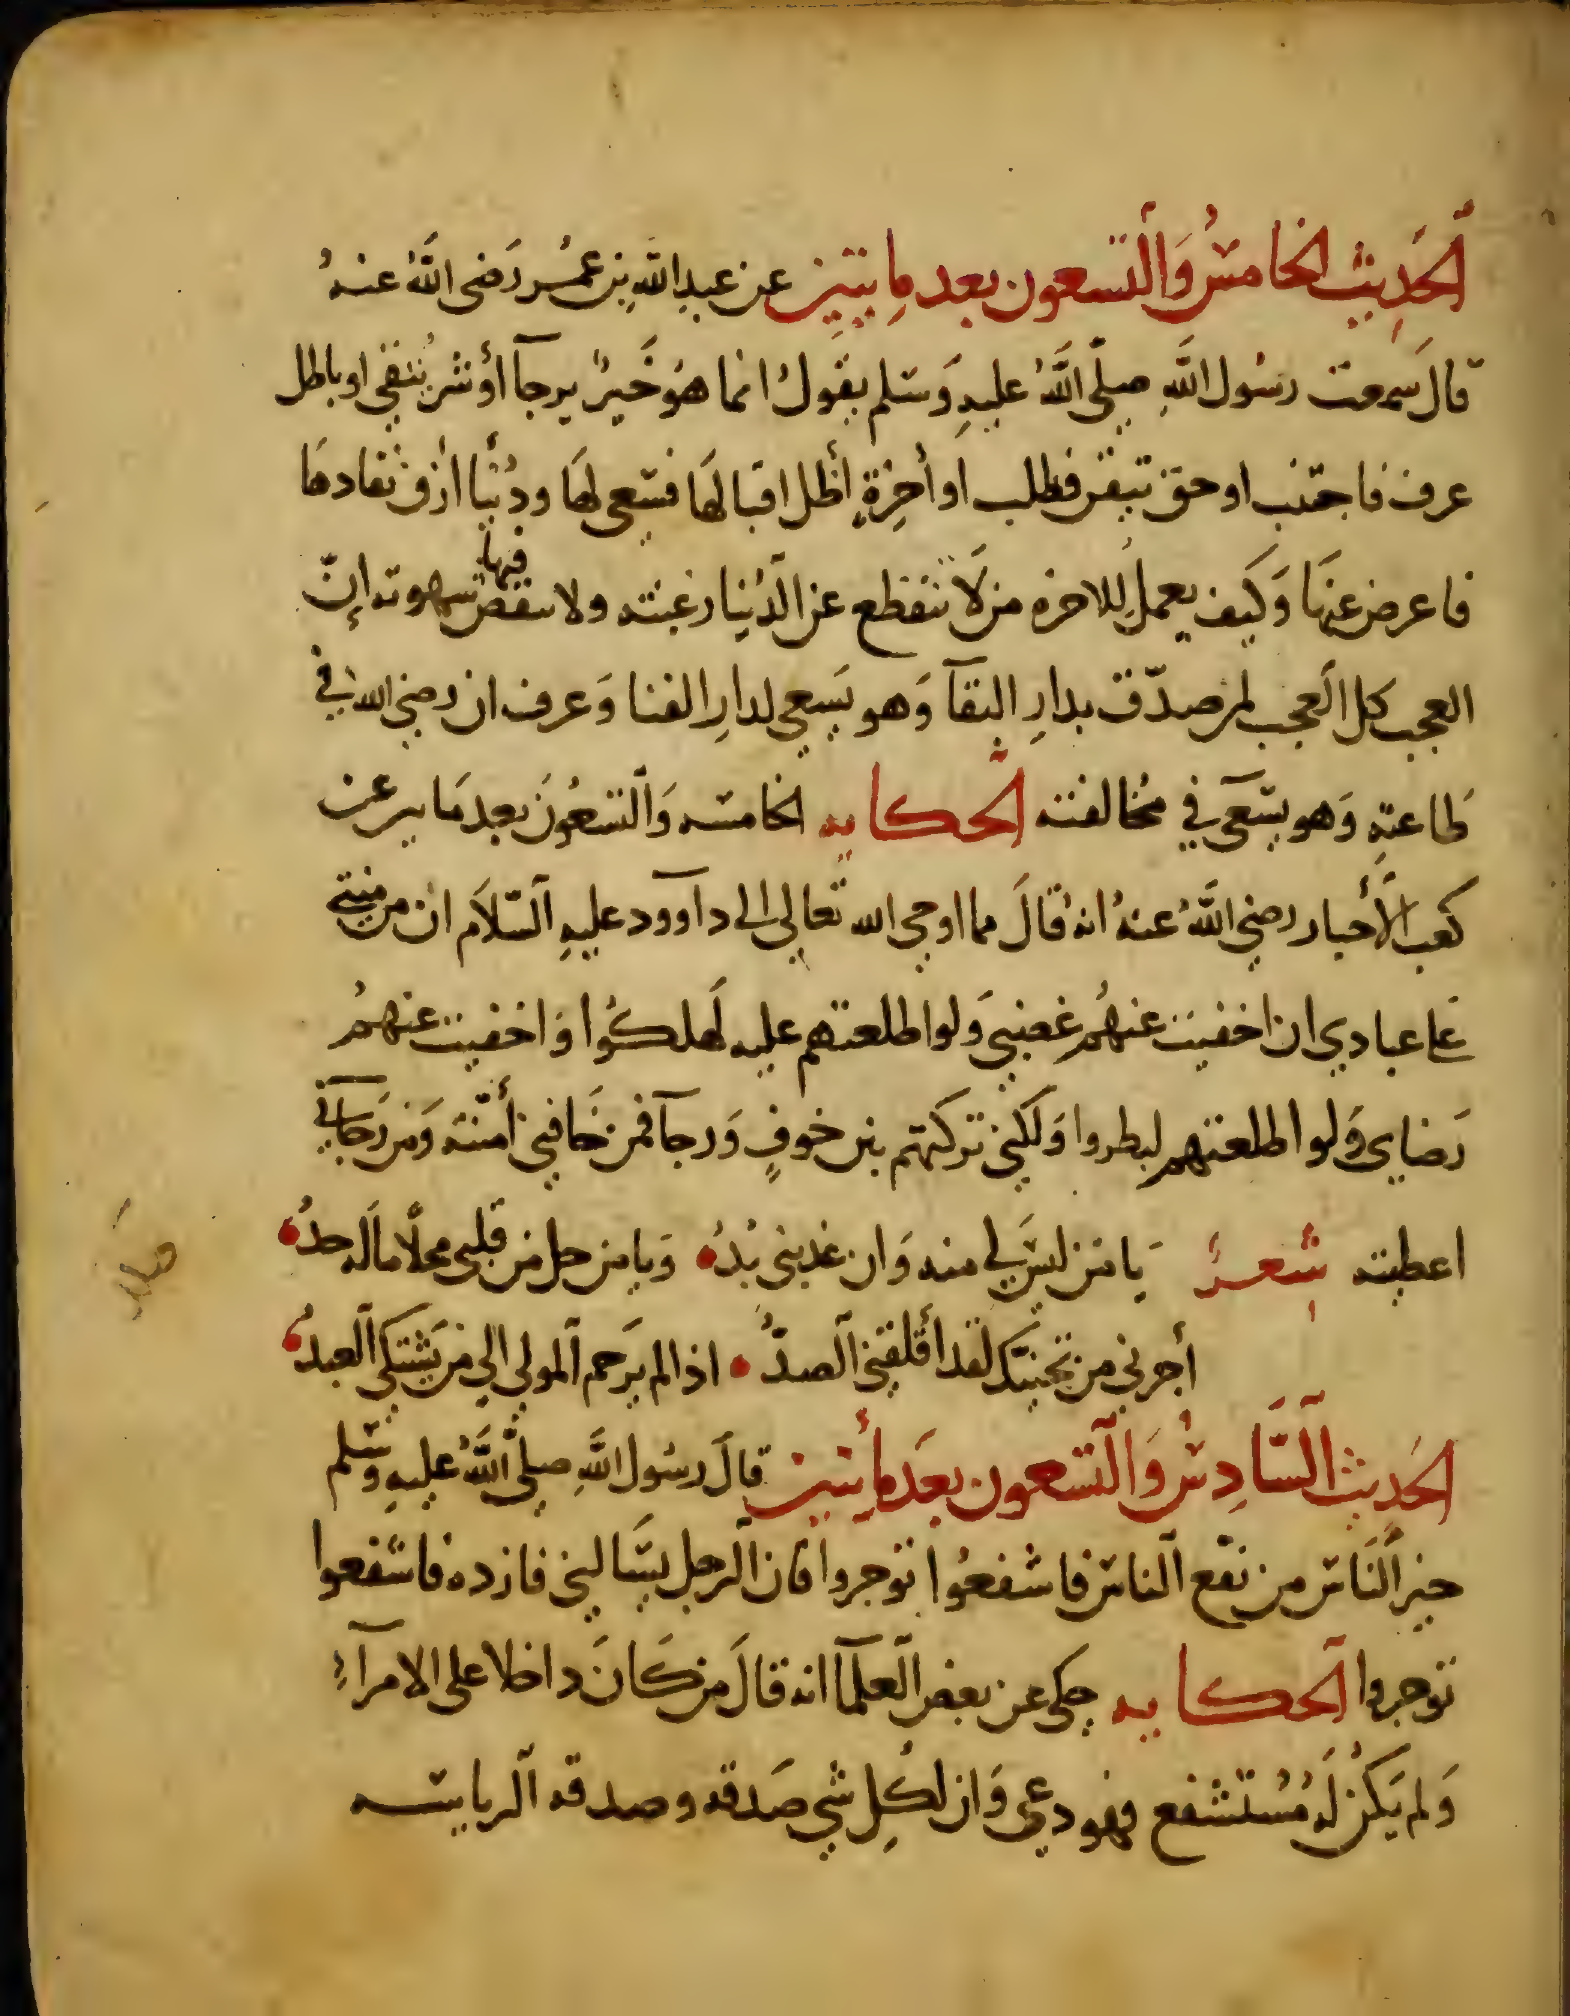 اَلحَدِيث الخامسُ وَالتسعون بعد مِايتين عن عبدِ اللَّهِ بن عمُر رَضى اللَّهُ عنهُ
قالَ سَمِعت رسُول اللَّهِ صلّى اللَّهُ عليهِ وَسَلم يقولُ انما هوَ خَيرٌ يرجآ أو شر يُتقي او باطل
عرف فاجتنب او حق تيقن فطلب او أخِرةٍ أظل اقبالهَا فسَعى لهَا ودُنْيا أزف نفادهَا
فاعرض عنهَا وَكيف يعملُ للاخره من لَا تنقطع عن الدُنيا رغبته ولا تنقضى فيها شهوته إنّ
العجب كل العجب لمن صدّق بدارِ البقآ وَهو يَسعى لدارِ الفنا وَعرف ان رضى الله في
طَاعتهِ وَهو يسَعى في مُخالفته اَلحكايه الخامسه وَالتسعُونَ بعد مَايتين عن
كعب الأَحبار رضي اللَّهُ عنهُ انهُ قالَ مما اوحي الله تعالي الى دآوود عليهِ السّلاَم ان من منتي
عَلى عبادي ان اخفيت عنهُم غضبي وَلو اطلعتهم عليه لَهلكوُا وَ اخفيت عنهمُ
رَضاى وَلو اطلعتهم لبطروا وَلكني تركتهم بين خوفٍ وَرجآ فمن خَافني أمنّته وَمَن رَجَاني
اعطيته شعرٌ يَا من ليسَ لي منه وَان عذبنى بُدُ وَيا من حل من قلبى محلًا مالَه حدُ
أجرني من تجنيك لقد أقلقنِى الصدُّ اذا لم يَرحم المولي الي من يَشتكى العبدُ
الحَدِيث السَّادِسُ وَالتسعون بعَد مأيتين قالَ رسُول اللَّهِ صلّى اللَّهُ عليهِ وسَلم
خير النَاس من نفَع الناس فاشفعُوا توجروا فان الرجل ليسَالني فازده فاشفعوا
توجروا اَلحكايه حكى عن بعض العلمآ انه قالَ من كَانَ داخلا على الامرآءِ
وَلم يَكُن لَه مُسْتشفع فهو دعي وَان لكُلِ شي صَدقه وصدقه الرياسه